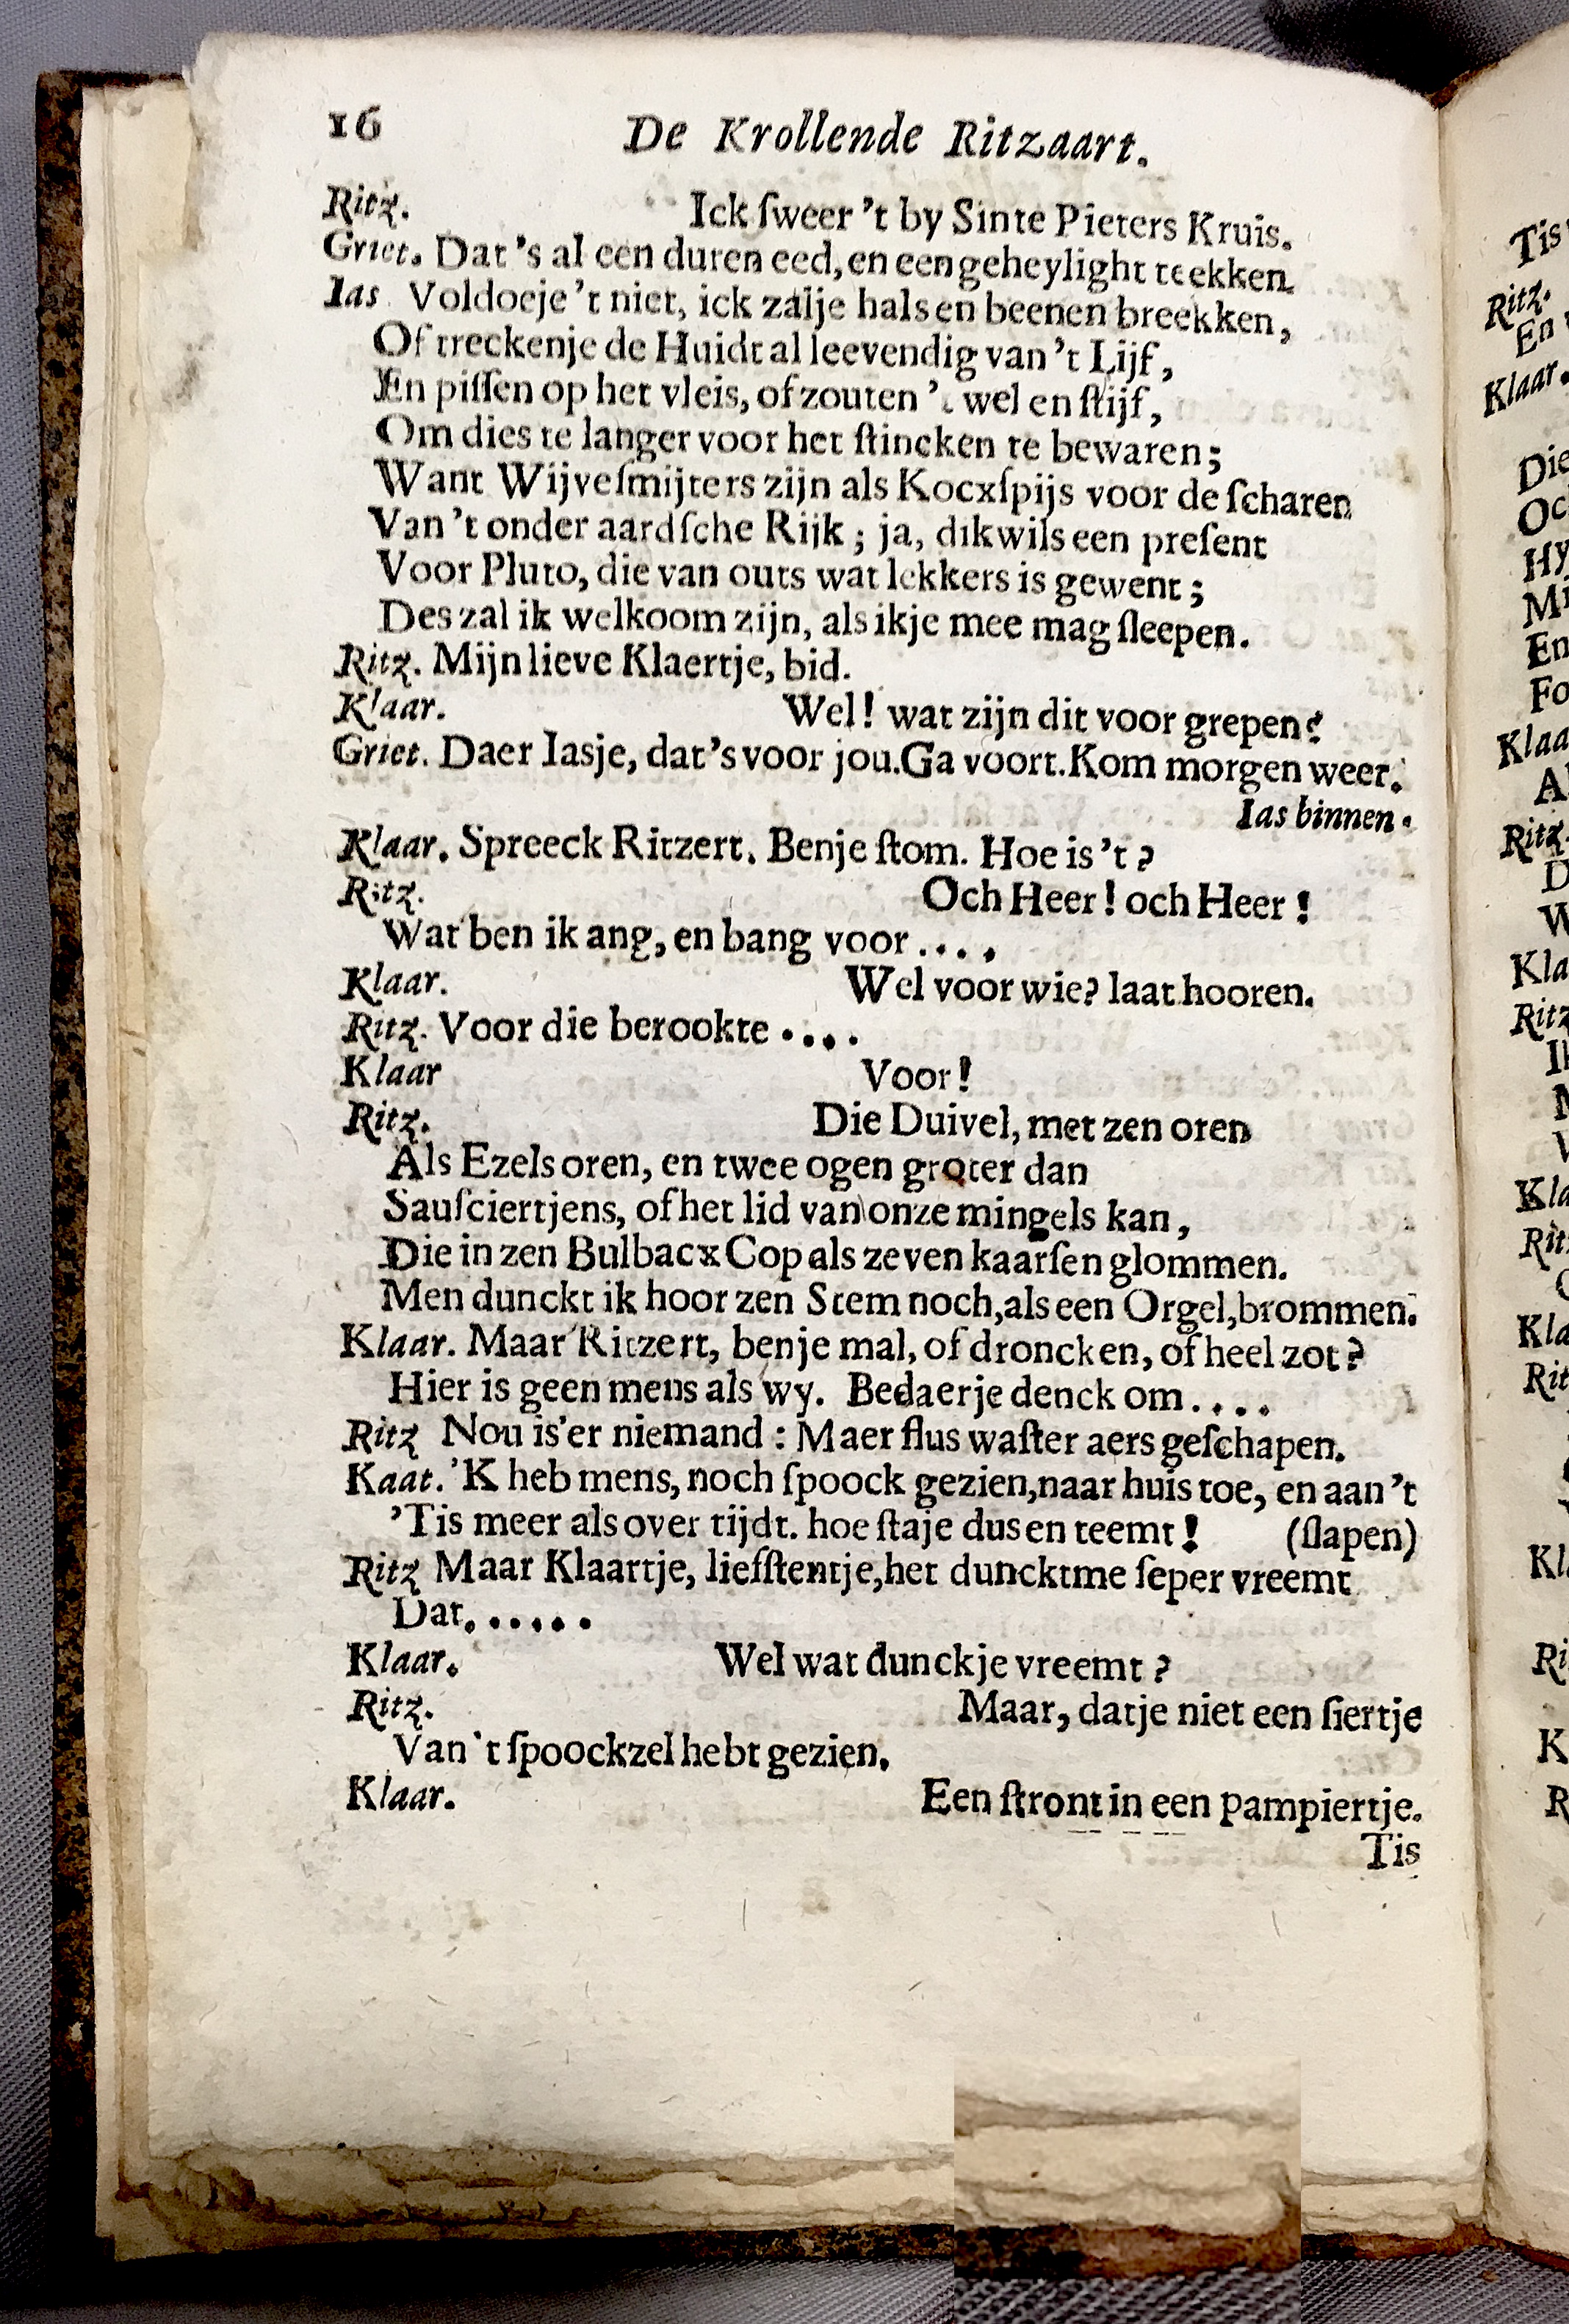 16 De Krollende Ritzaart.
Ritz. Ick ſweer 't by Sinte Pieters Kruis.
Griet. Dat 's al een duren eed, en een geheylight teekken.
Ias Voldoeje 't niet, ick zalje hals en beenen breekken,
Of treckenje de Huidt al leevendig van 't Lijf,
En piſſen op het vleis, of zouten 't wel en ſtijf,
Om dies te langer voor het ſtincken te bewaren;
Want Wijveſmijters zijn als Kocxſpijs voor de ſcharen
Van 't onder aardſche Rijk; ja, dikwils een preſent
Voor Pluto, die van outs wat lekkers is gewent;
Des zal ik welkoom zijn, als ikje mee mag ſleepen.
Ritz. Mijn lieve Klaertje, bid.
Klaar. Wel! wat zijn dit voor grepen?
Griet. Daer Iasje, dat's voor jou. Ga voort. Kom morgen weer.
Ias binnen.
Klaar. Spreeck Ritzert. Benje ſtom. Hoe is 't?
Ritz. Och Heer! och Heer!
Wat ben ik ang, en bang voor....
Klaar. Wel voor wie? laat hooren.
Ritz. Voor die berookte....
Klaar Voor!
Ritz. Die Duivel, met zen oren
Als Ezels oren, en twee ogen groter dan
Sauſciertjens, of het lid van onze mingels kan,
Die in zen Bulbacx Cop als zeven kaarſen glommen.
Men dunckt ik hoor zen Stem noch, als een Orgel, brommen.
Klaar. Maar Ritzert, benje mal, of droncken, of heel zot?
Hier is geen mens als wy. Bedaerje denck om....
Ritz Nou is'er niemand: Maer flus waſter aers geſchapen.
Kaat. 'K heb mens, noch ſpoock gezien, naar huis toe, en aan 't
'Tis meer als over tijdt. hoe ſtaje dus en teemt! (ſlapen)
Ritz Maar Klaartje, liefſtentje, het duncktme ſeper vreemt
Dat......
Klaar. Wel wat dunckje vreemt?
Ritz. Maar, datje niet een ſiertje
Van 't ſpoockzel hebt gezien.
Klaar. Een ſtront in een pampiertje.
Tis
Tis
Ritz.
En
Klaar.
Die
Hy
En